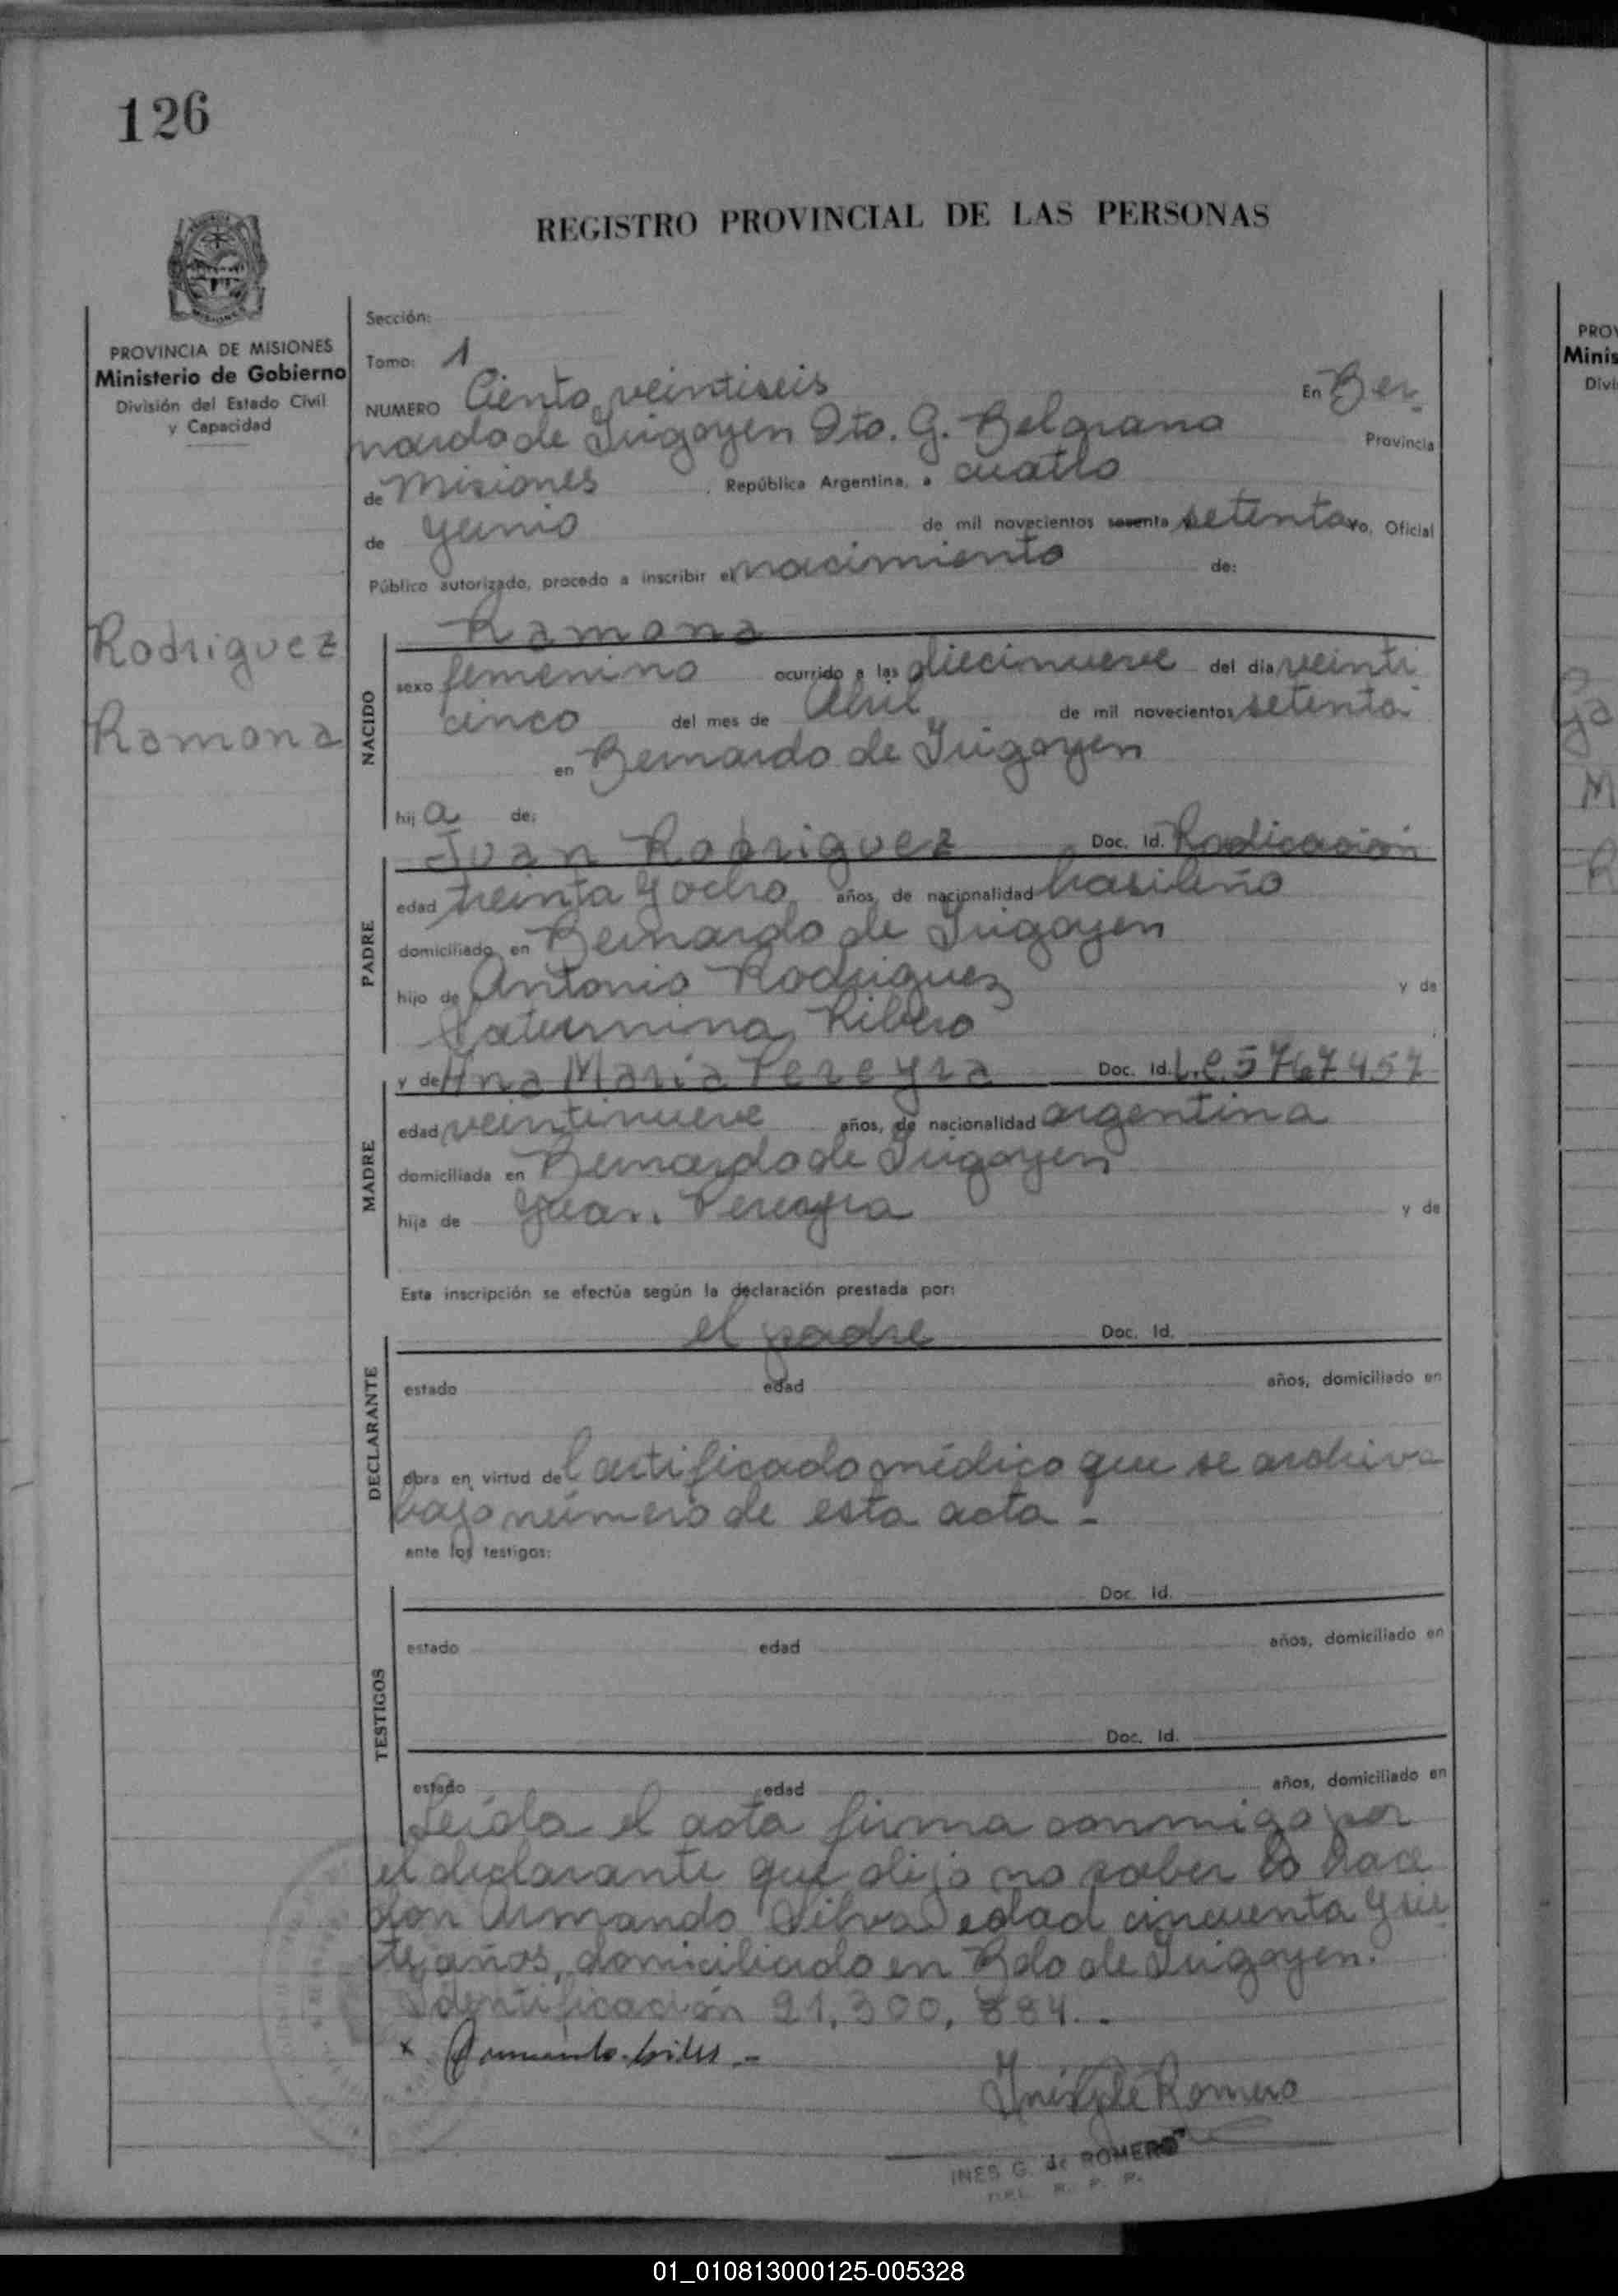 126
REGISTRO PROVINCIAL DE LAS PERSONAS
PROVINCIA DE MISIONES
Ministerio de Gobierno
División del Estado Civil
y Capacidad
Sección:
Tomo: 1
NUMERO Ciento veintiseis En Ber
nardo de Irigoyen Dto. G. Belgrano Provincia
de Misiones , República Argentina, a cuatro
de Junio de mil novecientos sesenta setenta yo, Oficial
Público autorizado, procedo a inscribir el nacimiento de:
Rodriguez
Ramona
NACIDO
Ramona
sexo femenino ocurrido a las diecinueve del día veinti
cinco del mes de Abril de mil novecientos setenta
en Bernardo de Irigoyen
hij a de:
PADRE
Juan Rodriguez Doc. Id. Radicación
edad treinta y ocho años, de nacionalidad brasileño
domiciliado en Bernardo de Irigoyen
hijo de Antonio Rodriguez y de
Saturnina Ribero
MADRE
y de Ana Maria Pereyra Doc. Id. L.C. 5767457
edad veintinueve años, de nacionalidad argentina
domiciliada en Bernardo de Irigoyen
hija de Juan Pereyra y de
Esta inscripción se efectúa según la declaración prestada por:
DECLARANTE
el padre Doc. Id.
estado edad años, domiciliado en
obra en virtud del certificado médico que se archiva
bajo número de esta acta -
ante los testigos:
TESTIGOS
Doc. Id.
estado edad años, domiciliado en
Doc. Id.
estado edad años, domiciliado en
Leida el acta firma conmigo por
el declarante que dijo no saber lo hace
don Armando Silva edad cincuenta y sie
te años, domiciliado en Bdo de Irigoyen.
Identificación 21,300,884.
x
Inés G de Romero
INES G. de ROMERO
R. P. P.
PROV
Minis
Divi
01_010813000125-005328